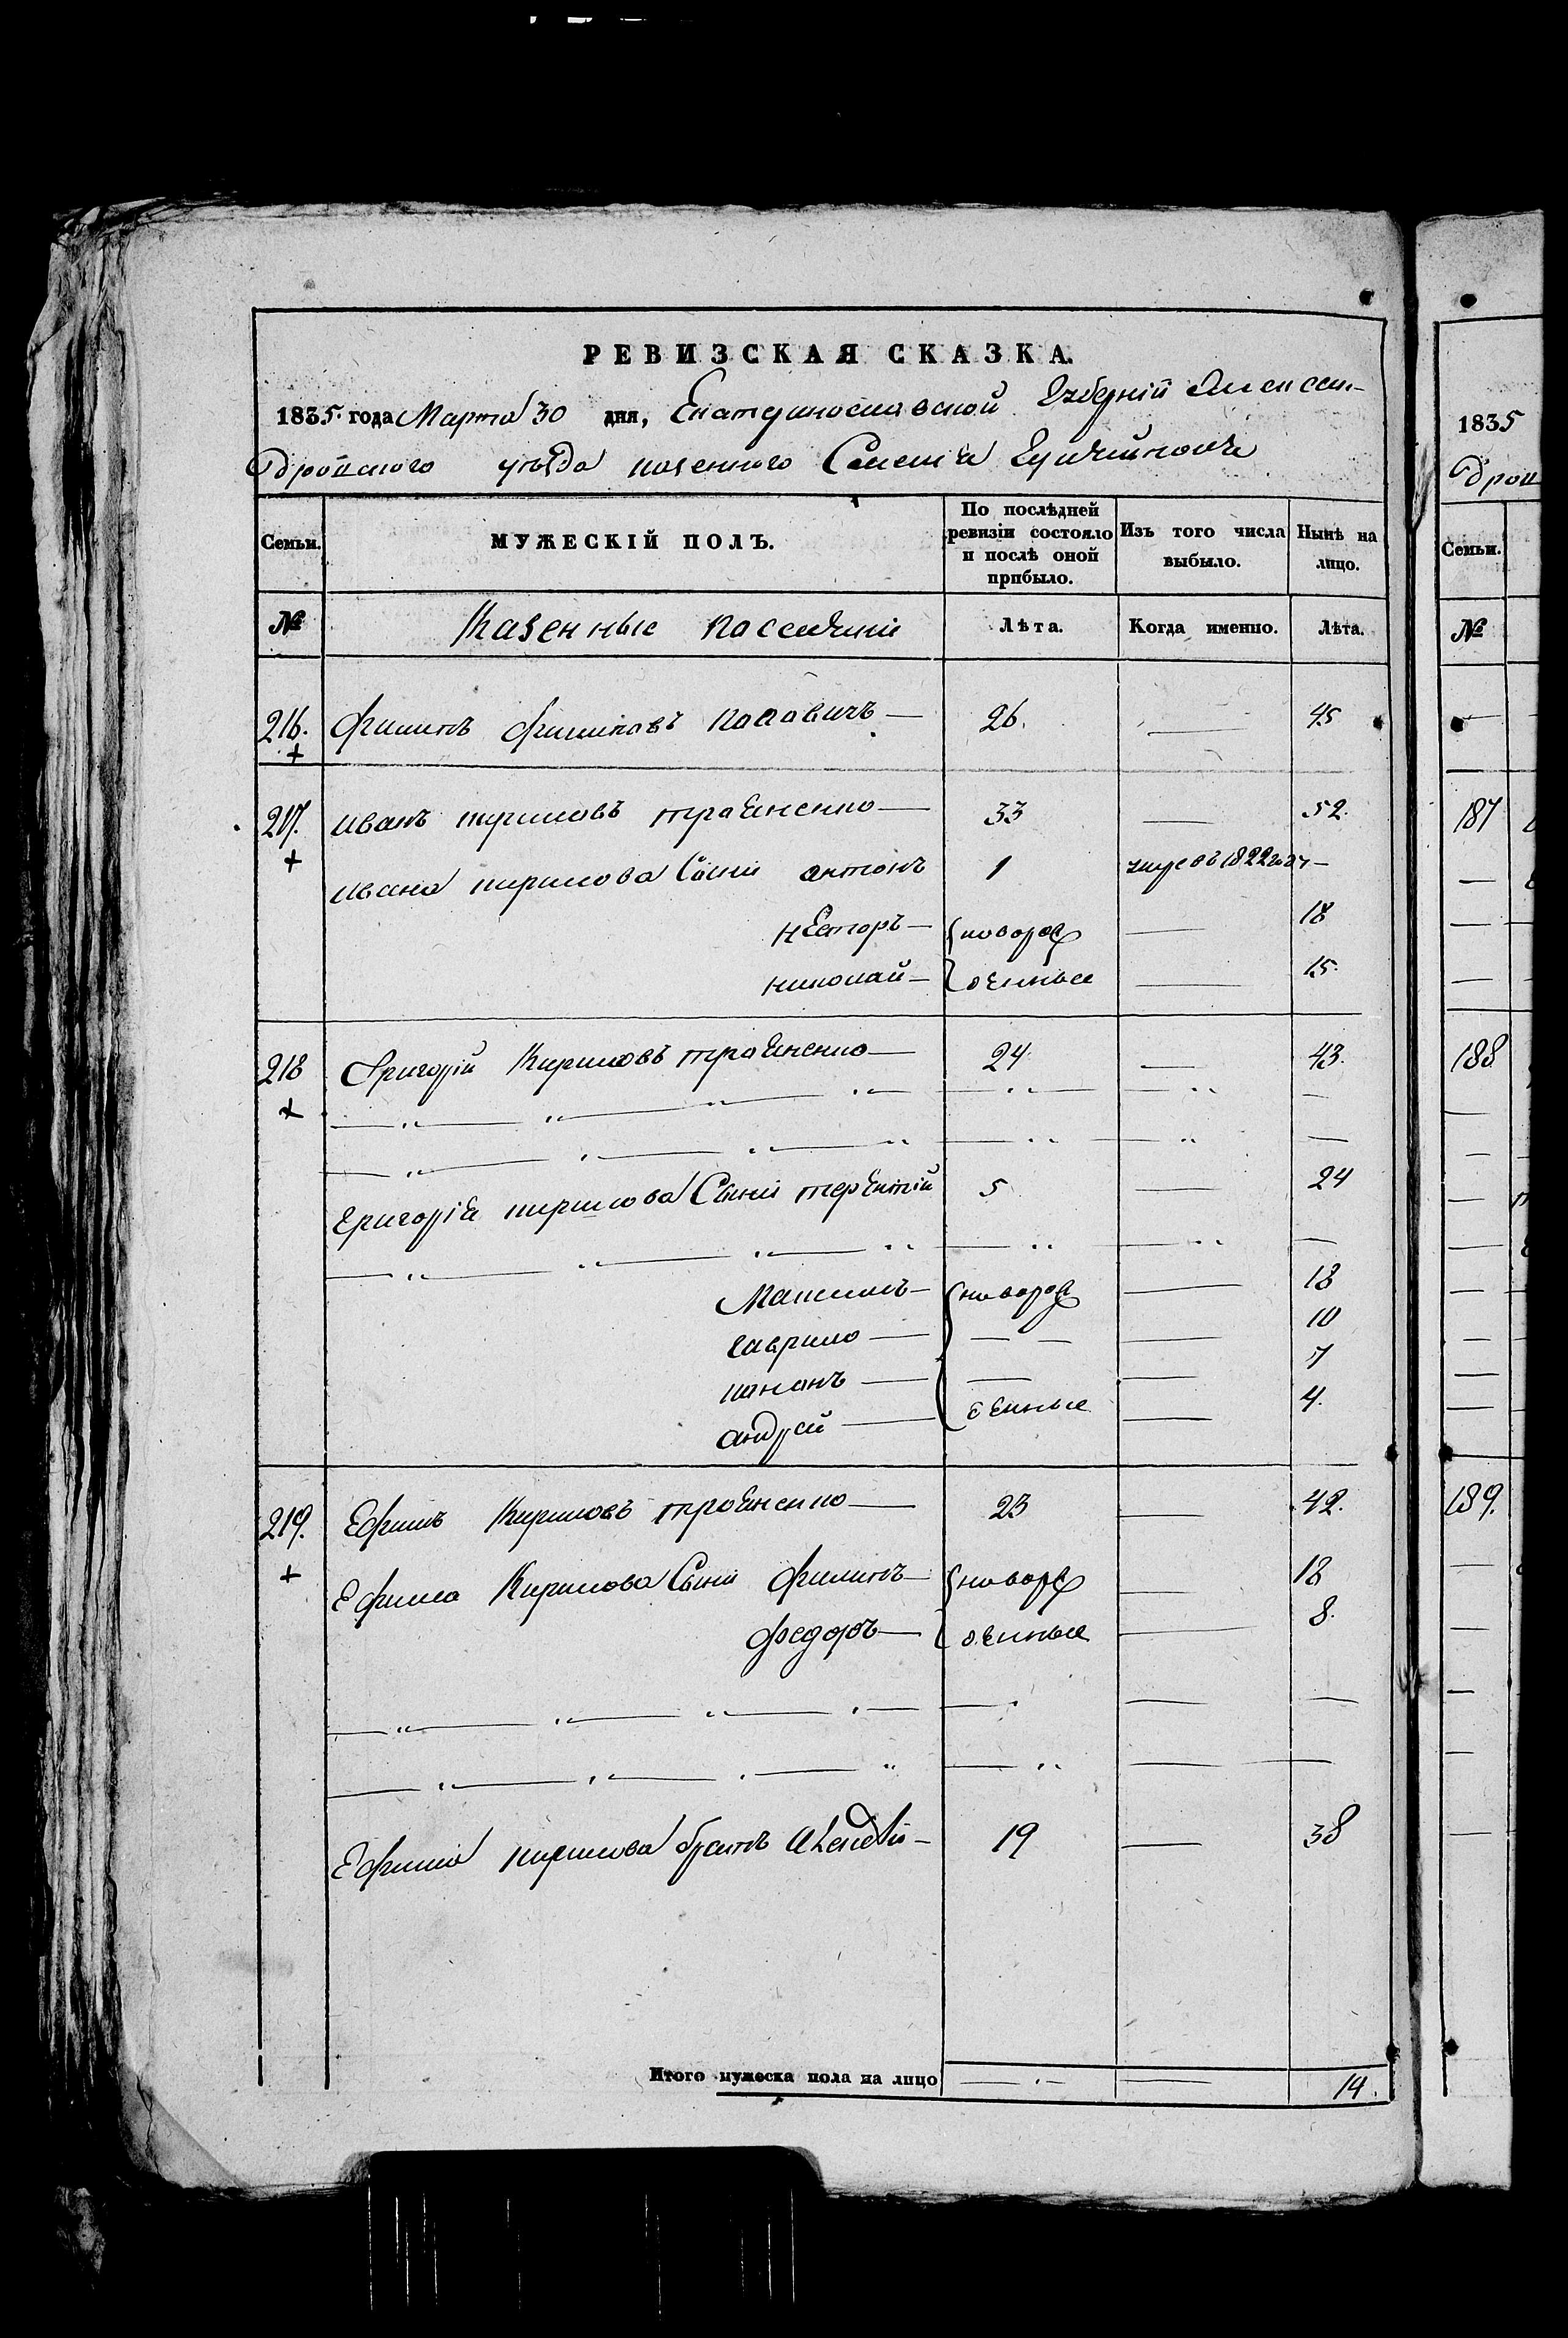 РЕВИЗСКАЯ СКАЗКА.
1835 года Марта 30 дня, Екатеринославской Губерніи Алексан-
дрійского уезда казенного Селенія
Семьи. МУЖЕСКІЙ ПОЛЪ. По послѣдней ревизіи состояло и послѣ оной прибыло. Изъ того числа выбыло. Нынѣ на лицо.
№ Казенные Поселяни Лѣта. Когда именно. Лѣта.
216. Филипъ Филиповъ 26. — 45
217. Иванъ кириловъ — 33 — 52.
Ивана кирилова Сыни антонъ 1 умре въ 1822 году —
Несторъ — новорож — 18
николай — денные — 15.
218 Григорій Кириловъ — 24 — 43.
Григорія кирилова Сыни терентій 5 — 24
Максимъ — новорож — 18
гаврило — — — 10
кононъ — — — 7
андрей — денные — 4.
219. Ефимъ Кириловъ — 23 — 42.
Ефима Кирилова Сыни филипъ — новорож — 18
федоръ — денные — 8.
Ефима кирилова братъ — 19 — 38
Итого мужеска пола на лицо — — 14.
1835
дрой
Семьи.
№
187
188
189.